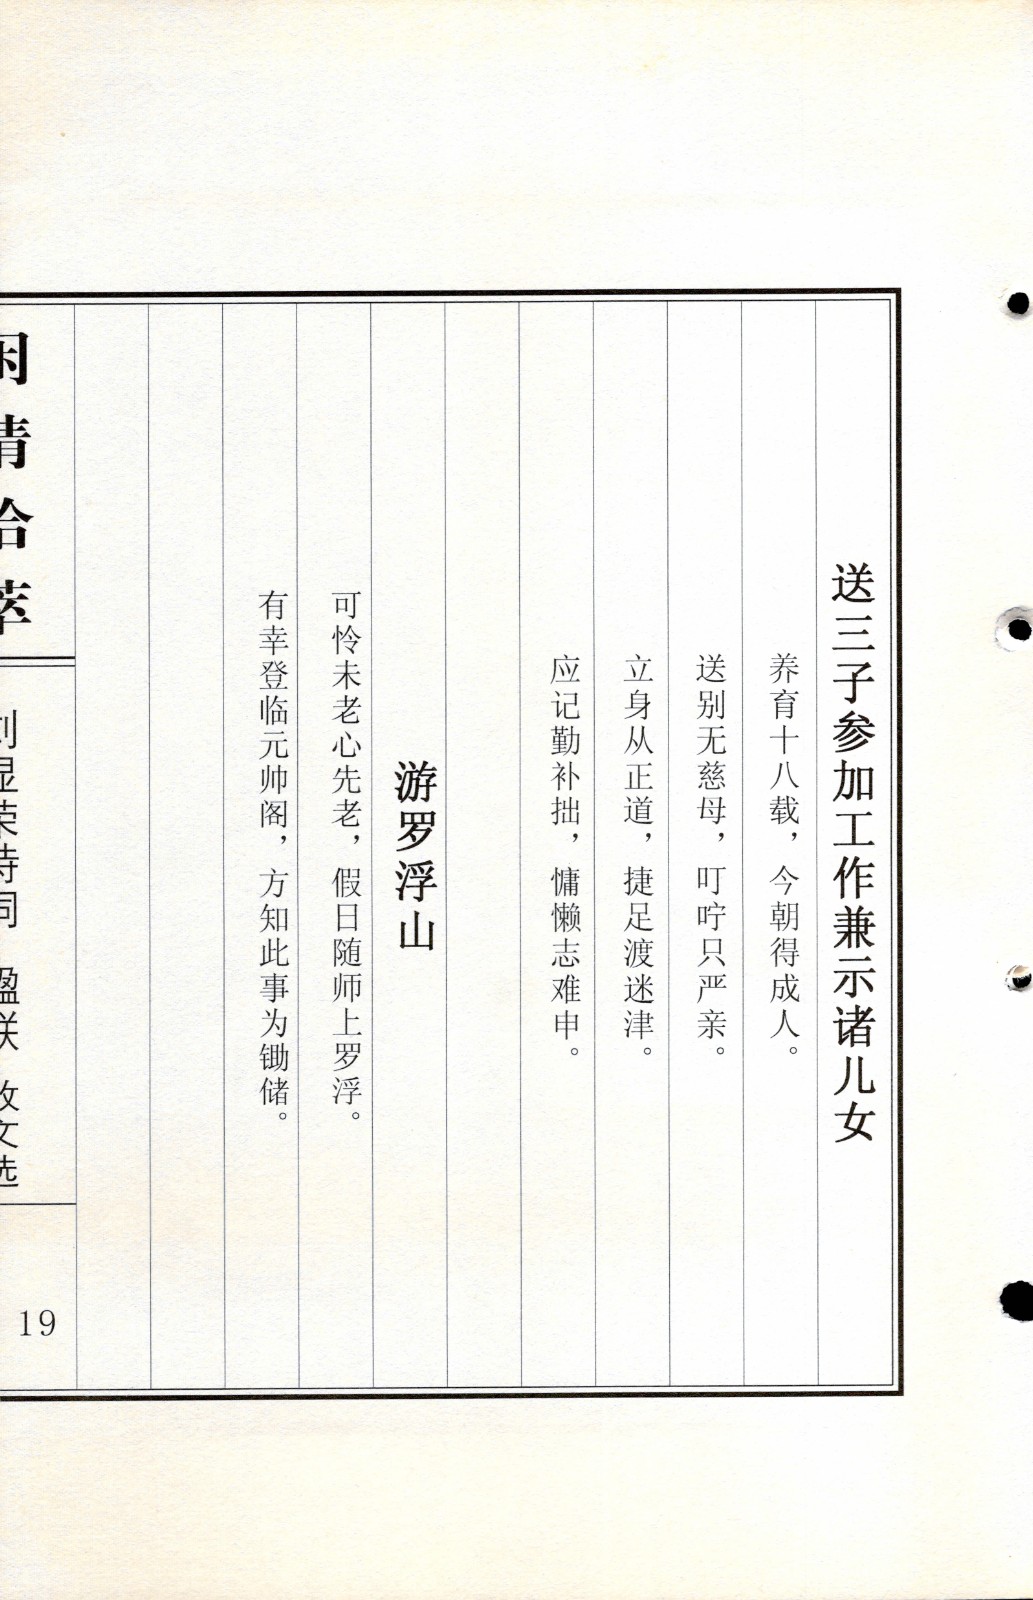 送三子参加工作兼示诸儿女
养育十八载，今朝得成人。
送别无慈母，叮咛只严亲。
立身从正道，捷足渡迷津。
应记勤补拙，慵懒志难申。
游罗浮山
可怜未老心先老，假日随师上罗浮。
有幸登临元帅阁，方知此事为锄储。
闲情拾萃
刘显荣诗词 盈联 散文选
19